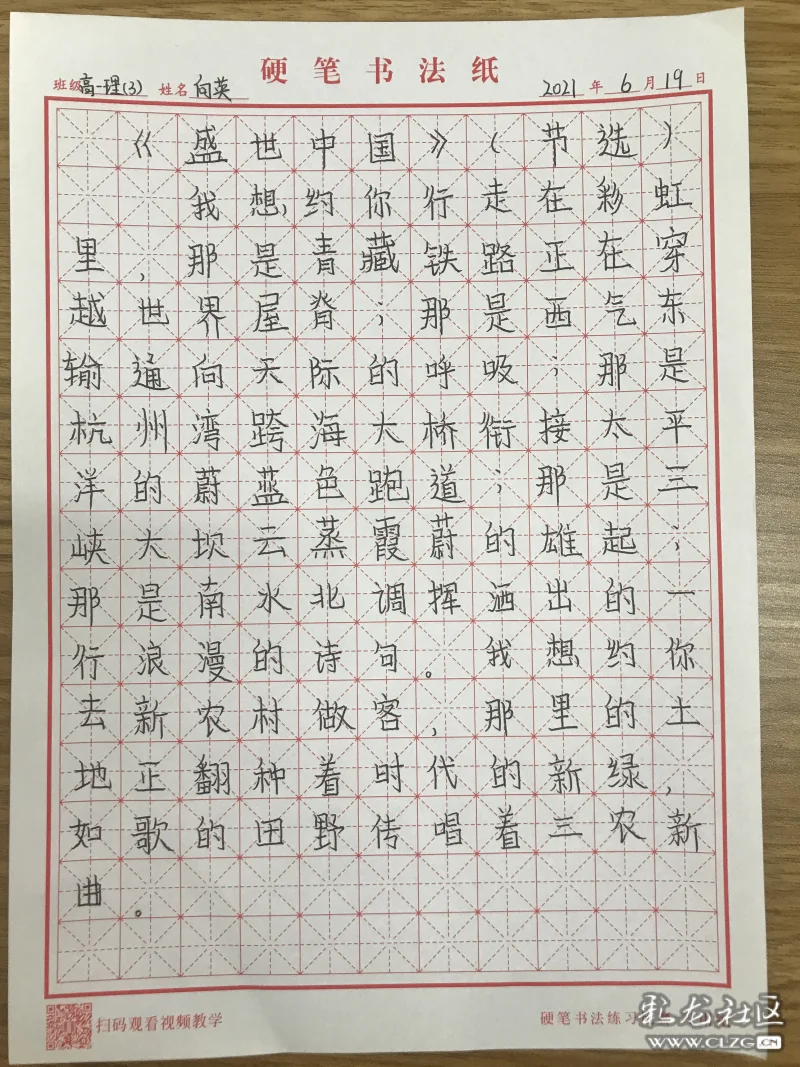 硬笔书法纸
班级 高一理(3) 姓名 向英 2021年6月19日
《盛世中国》(节选)
我想,约你行走在彩虹
里,那是青藏铁路正在穿
越世界屋脊;那是西气东
输通向天际的呼吸;那是
杭州湾跨海大桥衔接太平
洋的蔚蓝色跑道;那是三
峡大坝云蒸霞蔚的雄起;
那是南水北调挥洒出的一
行浪漫的诗句。我想约你
去新农村做客,那里的土
地正翻种着时代的新绿,
如歌的田野传唱着三农新
曲。
扫码观看视频教学
硬笔书法练习
彩龙社区
WWW.CLZG.CN